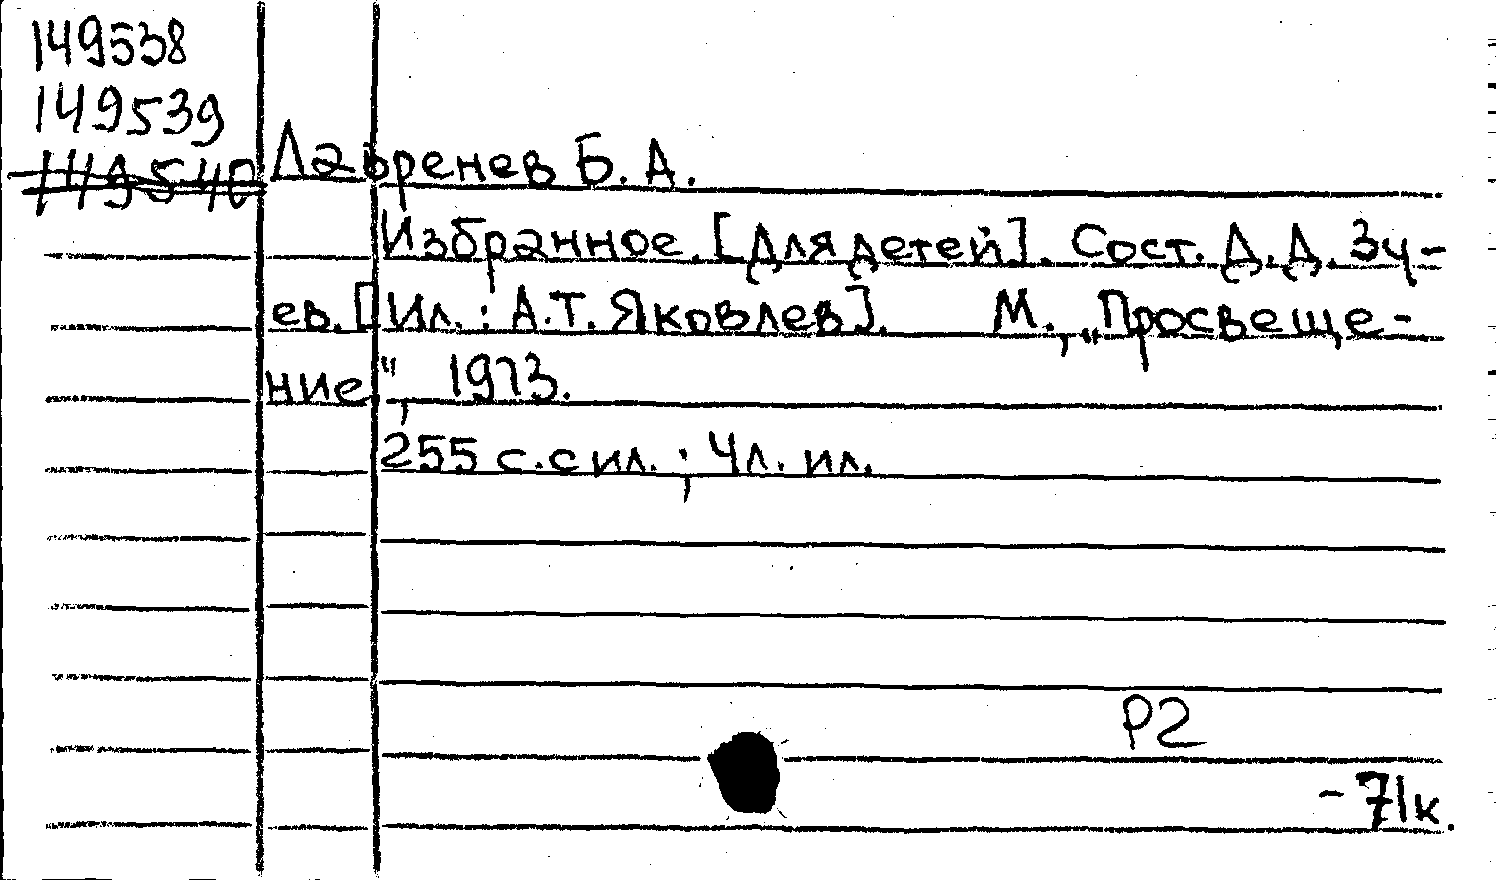 149538
149539
149540
Лавренев Б. А.
Избранное. [Для детей]. Сост. Д. Д. Зу-
ев. [Ил.: А. Т. Яковлев]. М., „Просвеще-
ние", 1973.
255 с. с ил.; 4 л. ил.
Р2
- 71к.